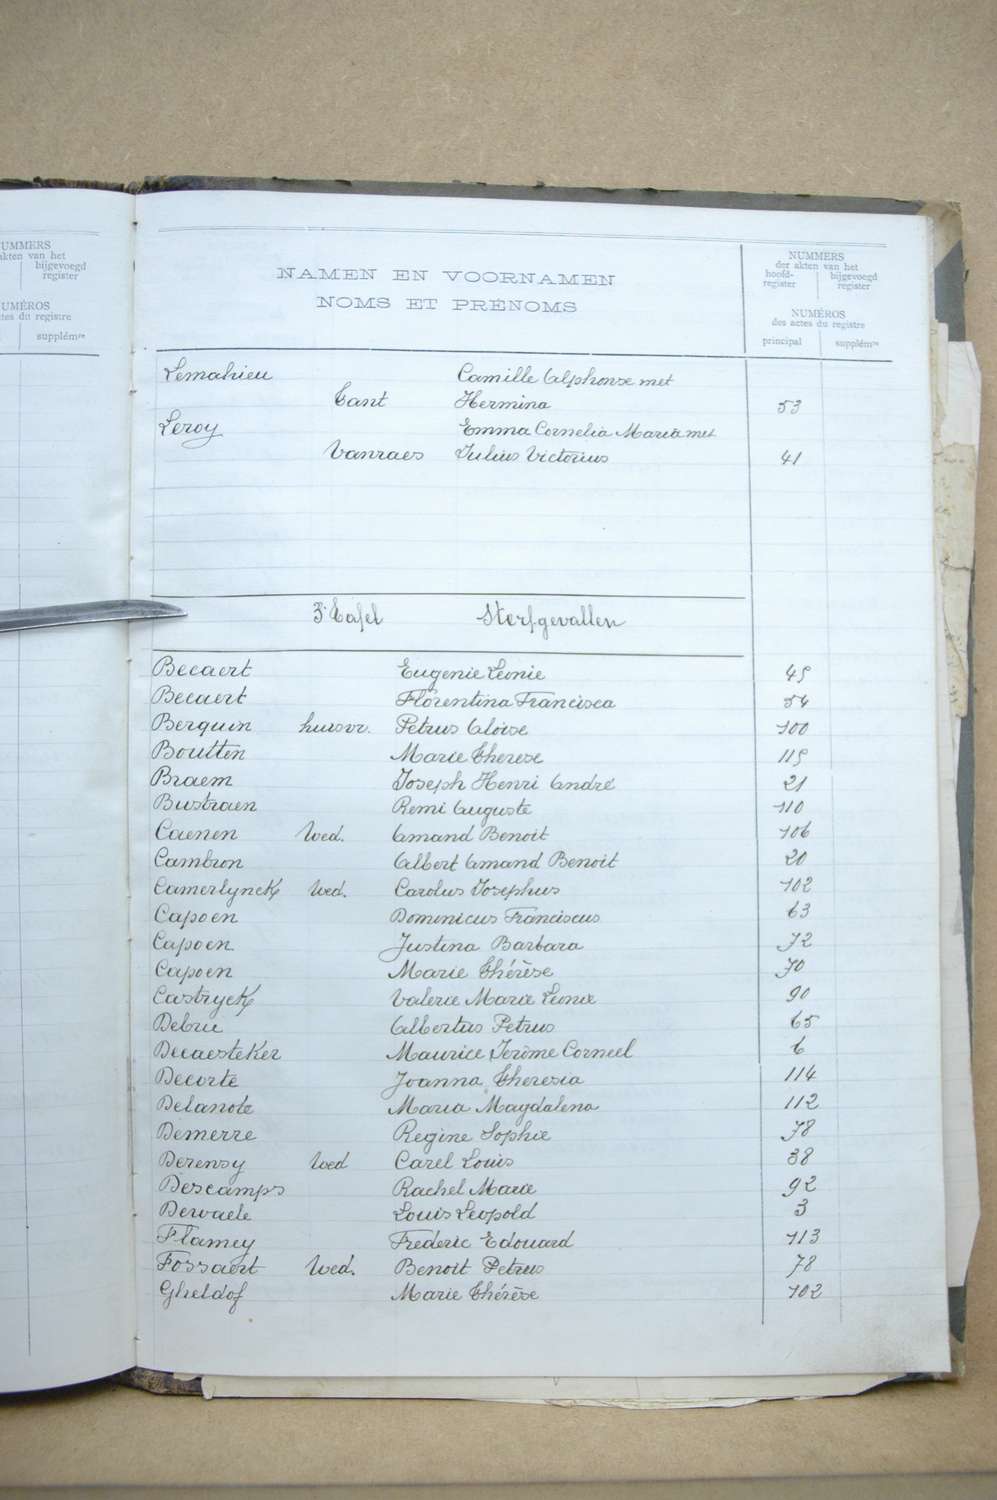 UMMERS
akten van het
bijgevoegd
register
UMÉROS
tes du registre
supplémre
NAMEN EN VOORNAMEN
NOMS ET PRÉNOMS
NUMMERS
der akten van het
hoofd-register bijgevoegd register
NUMÉROS
des actes du registre
principal supplémre
Lemahieu Camille Alphonse met
Tant Hermina 53
Leroy Emma Cornelia Maria met
Vanraes Julius Victorius 41
3e Tafel Sterfgevallen
Becaert Eugenie Leonie 45
Becaert Florentina Francisca 54
Berquin huisvr. Petrus Aloïse 100
Boutten Marie Therese 115
Braem Joseph Henri André 21
Bustraen Remi Auguste 110
Caenen Wed. Amand Benoit 106
Cambron Albert Amand Benoit 20
Camerlynck Wed. Carolus Josephus 102
Capoen Dominicus Franciscus 63
Capoen Justina Barbara 72
Capoen Marie Thérèse 70
Castryck Valerie Marie Leonie 90
Debru Albertus Petrus 65
Decaesteker Maurice Jerôme Corneel 6
Decorte Joanna Theresia 114
Delanote Maria Magdalena 112
Demerre Regine Sophie 78
Derensy Wed Carel Louis 38
Descamps Rachel Marie 92
Dewaele Louis Leopold 3
Flamey Frederic Edouard 113
Fossaert Wed. Benoit Petrus 78
Gheldof Marie Thérèse 102